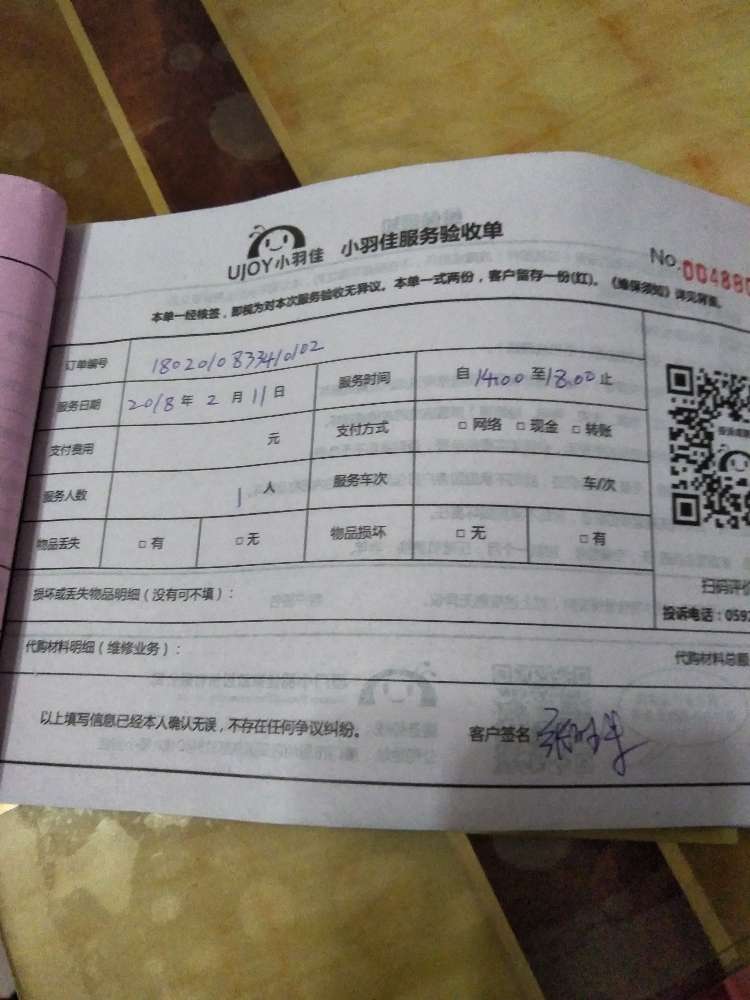 UJOY小羽佳 小羽佳服务验收单
No.004880
本单一经核签，即视为对本次服务验收无异议。本单一式两份，客户留存一份(红)。《维保须知》详见背面。
订单编号 1802010833410102
服务日期 2018年 2月 11日 服务时间 自14:00至18:00止
支付费用 元 支付方式 □ 网络 □ 现金 □ 转账
服务人数 1人 服务车次 车/次
物品丢失 □ 有 □ 无 物品损坏 □ 无 □ 有
扫码评价
损坏或丢失物品明细（没有可不填）：
投诉电话：0592
代购材料明细（维修业务）： 代购材料总额
以上填写信息已经本人确认无误，不存在任何争议纠纷。 客户签名